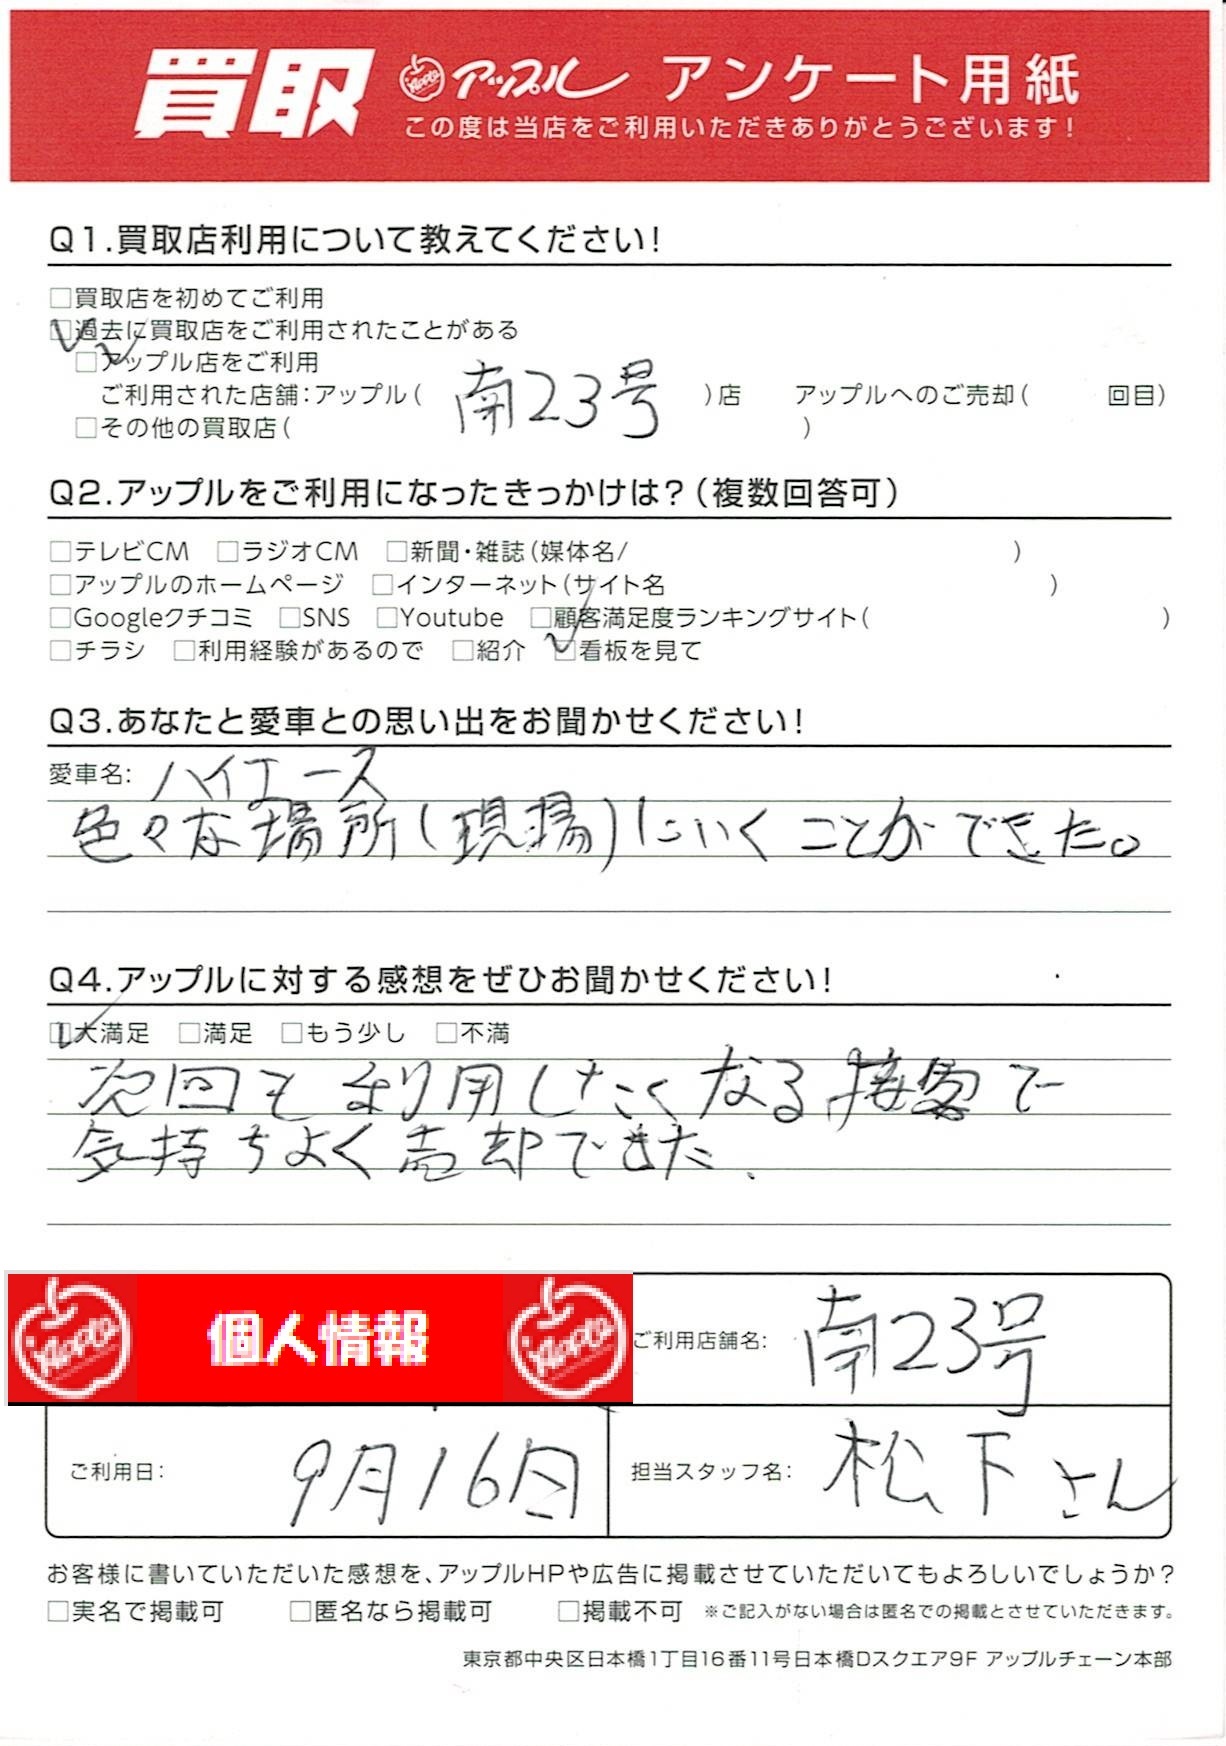 買取 Apple アップル アンケート用紙
この度は当店をご利用いただきありがとうございます!
Q1.買取店利用について教えてください!
□買取店を初めてご利用
☑過去に買取店をご利用されたことがある
☑アップル店をご利用
ご利用された店舗:アップル( 南23号 )店 アップルへのご売却( 回目)
□その他の買取店( )
Q2.アップルをご利用になったきっかけは?(複数回答可)
□テレビCM □ラジオCM □新聞・雑誌(媒体名/ )
□アップルのホームページ □インターネット(サイト名 )
□Googleクチコミ □SNS □Youtube □顧客満足度ランキングサイト( )
□チラシ □利用経験があるので □紹介 ☑看板を見て
Q3.あなたと愛車との思い出をお聞かせください!
愛車名: ハイエース
色々な場所(現場)にいくことができた。
Q4.アップルに対する感想をぜひお聞かせください!
☑大満足 □満足 □もう少し □不満
次回も利用したくなる接客で
気持ちよく売却できた.
Apple 個人情報 Apple ご利用店舗名: 南23号
ご利用日: 9月16日 担当スタッフ名: 松下さん
お客様に書いていただいた感想を、アップルHPや広告に掲載させていただいてもよろしいでしょうか?
□実名で掲載可 □匿名なら掲載可 □掲載不可 ※ご記入がない場合は匿名での掲載とさせていただきます。
東京都中央区日本橋1丁目16番11号日本橋Dスクエア9F アップルチェーン本部